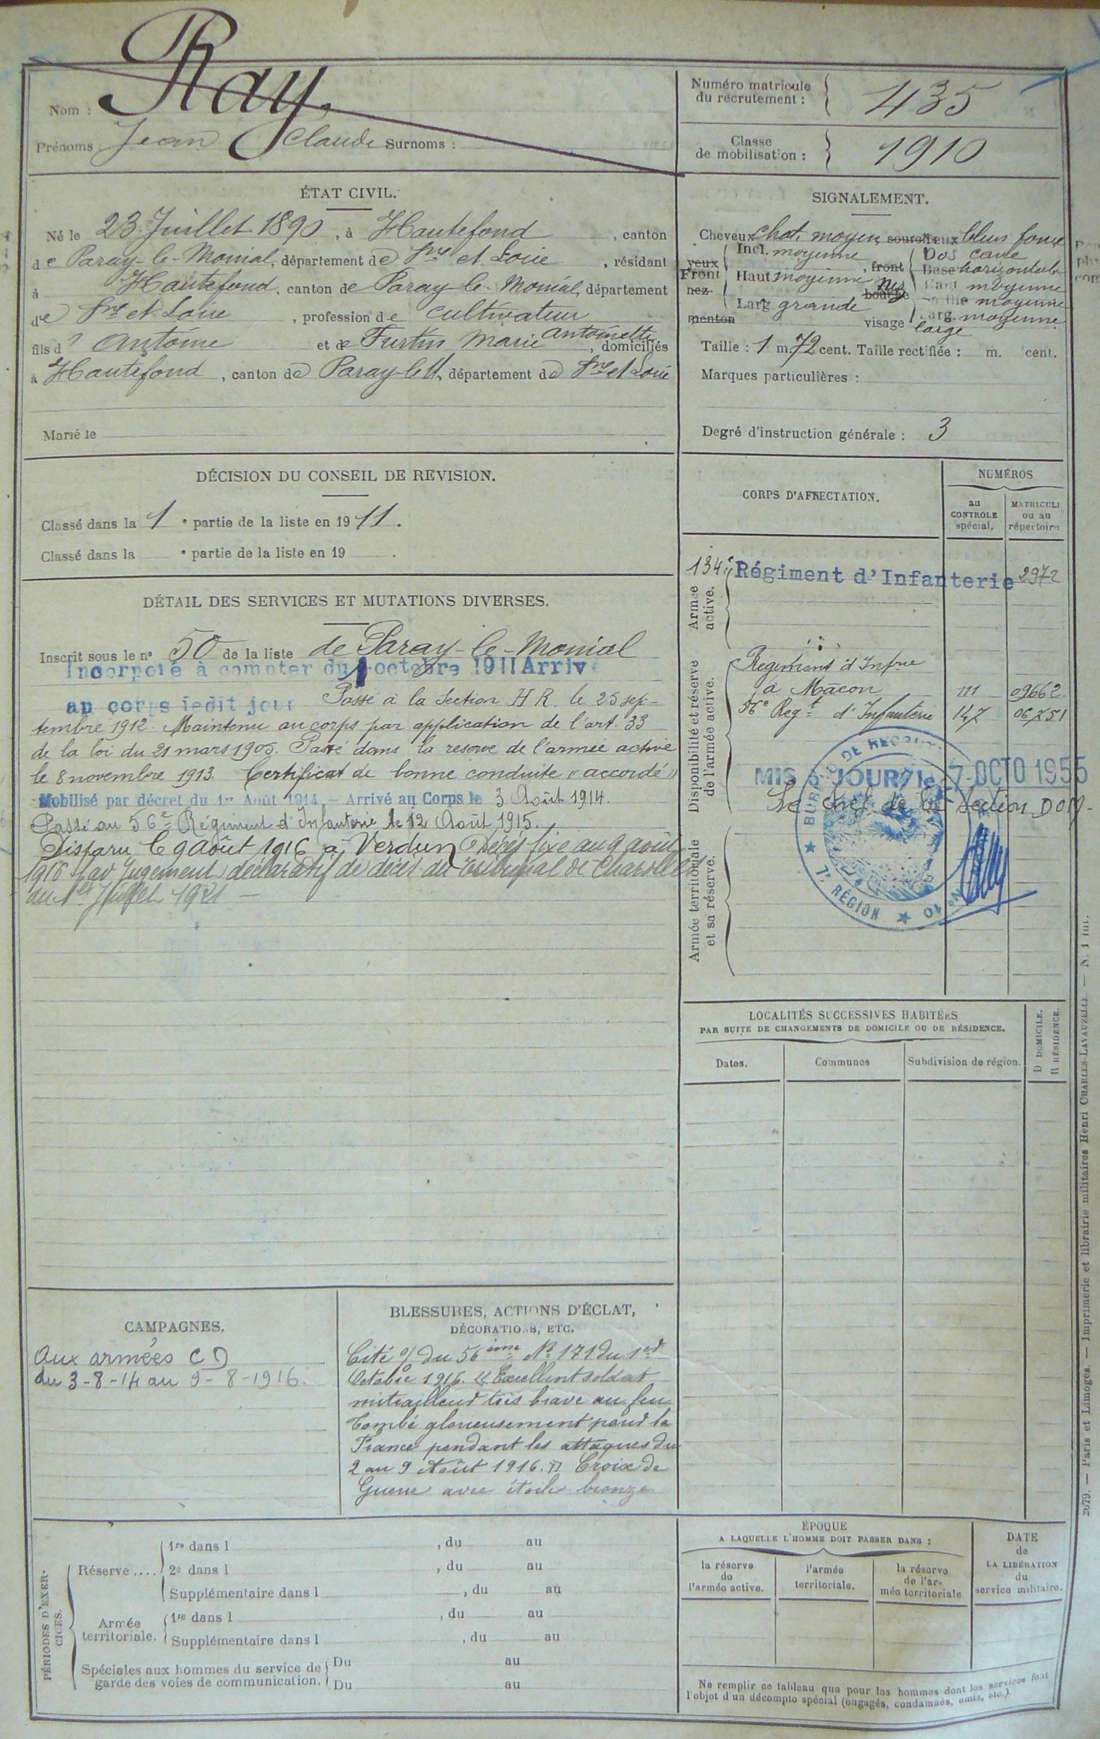 Nom : Ray
Prénoms : Jean Claude Surnoms :
Numéro matricule du recrutement : 435
Classe de mobilisation : 1910
ÉTAT CIVIL.
Né le 23 Juillet 1890, à Hautefond, canton
de Paray-le-Monial, département de Sne et Loire, résidant
à Hautefond, canton de Paray-le-Monial, département
de Sne et Loire, profession de cultivateur
fils d' Antoine et de Furtin Marie Antoinette, domiciliés
à Hautefond, canton de Paray-le-M, département de Sne et Loire
Marié le
SIGNALEMENT.
Cheveux chat. moyen sourcils yeux bleus foncé
yeux Incl. moyenne Dos cave
Front Haut moyenne, front nez Base horizontale
nez Haut moyenne
bouche Saillie moyenne
menton Larg grande visage large Larg. moyenne
Taille : 1 m 72 cent. Taille rectifiée : m. cent.
Marques particulières :
Degré d'instruction générale : 3
DÉCISION DU CONSEIL DE REVISION.
Classé dans la 1e partie de la liste en 1911.
Classé dans la e partie de la liste en 19 .
DÉTAIL DES SERVICES ET MUTATIONS DIVERSES.
Inscrit sous le n° 50 de la liste de Paray-le-Monial
Incorporé à compter du 1 octobre 1911 Arrivé
au corps ledit jour Passé à la Section H R. le 25 sep-
tembre 1912. Maintenu au corps par application de l'art. 33
de la loi du 21 mars 1905. Passé dans la réserve de l'armée active
le 8 novembre 1913. Certificat de bonne conduite "accordé"
Mobilisé par décret du 1er Août 1914. - Arrivé au Corps le 3 Août 1914.
Passé au 56e Régiment d'Infanterie le 12 Août 1915.
Disparu le 9 Août 1916 à Verdun Décès fixé au 9 août
1916 par Jugement déclaratif de décès du tribunal de Charolles
au 1er Juillet 1921 —
CORPS D'AFFECTATION.
NUMÉROS
au CONTROLE spécial.
MATRICULE ou au répertoire
Armée active.
134e Régiment d'Infanterie 2972
Disponibilité et réserve de l'armée active.
Régiment d'Infrie
à Mâcon 111 09662
56e Regt d'Infanterie 147
MIS À JOUR le 7 OCTO 1955
Le chef de la section
BUREAU DE RECRUTEMENT
7e RÉGION
Armée territoriale et sa réserve.
LOCALITÉS SUCCESSIVES HABITÉES
PAR SUITE DE CHANGEMENTS DE DOMICILE OU DE RÉSIDENCE.
Dates. Communes Subdivision de région.
D DOMICILE.
R RÉSIDENCE.
CAMPAGNES.
Aux armées C D
du 3-8-14 au 9-8-1916.
BLESSURES, ACTIONS D'ÉCLAT,
DÉCORATIONS, ETC.
Cité o/ du 56ième No 171 du 1er
Octobre 1916. "Excellent soldat
mitrailleur très brave au feu
tombé glorieusement pour la
France pendant les attaques du
2 au 9 Août 1916." Croix de
Guerre avec étoile bronze
PÉRIODES D'EXERCICES.
Réserve .... 1re dans l , du au
2e dans l , du au
Supplémentaire dans l , du au
Armée territoriale. 1re dans l , du au
Supplémentaire dans l , du au
Spéciales aux hommes du service de garde des voies de communication. Du au
Du au
ÉPOQUE
A LAQUELLE L'HOMME DOIT PASSER DANS :
la réserve de l'armée active.
l'armée territoriale.
la réserve de l'armée territoriale
DATE de LA LIBÉRATION du service militaire.
Ne remplir ce tableau que pour les hommes dont les services font
l'objet d'un décompte spécial (engagés, condamnés, omis, etc.).
2079. — Paris et Limoges. — Imprimerie et librairie militaires Henri CHARLES-LAVAUZELLE. — N. 1